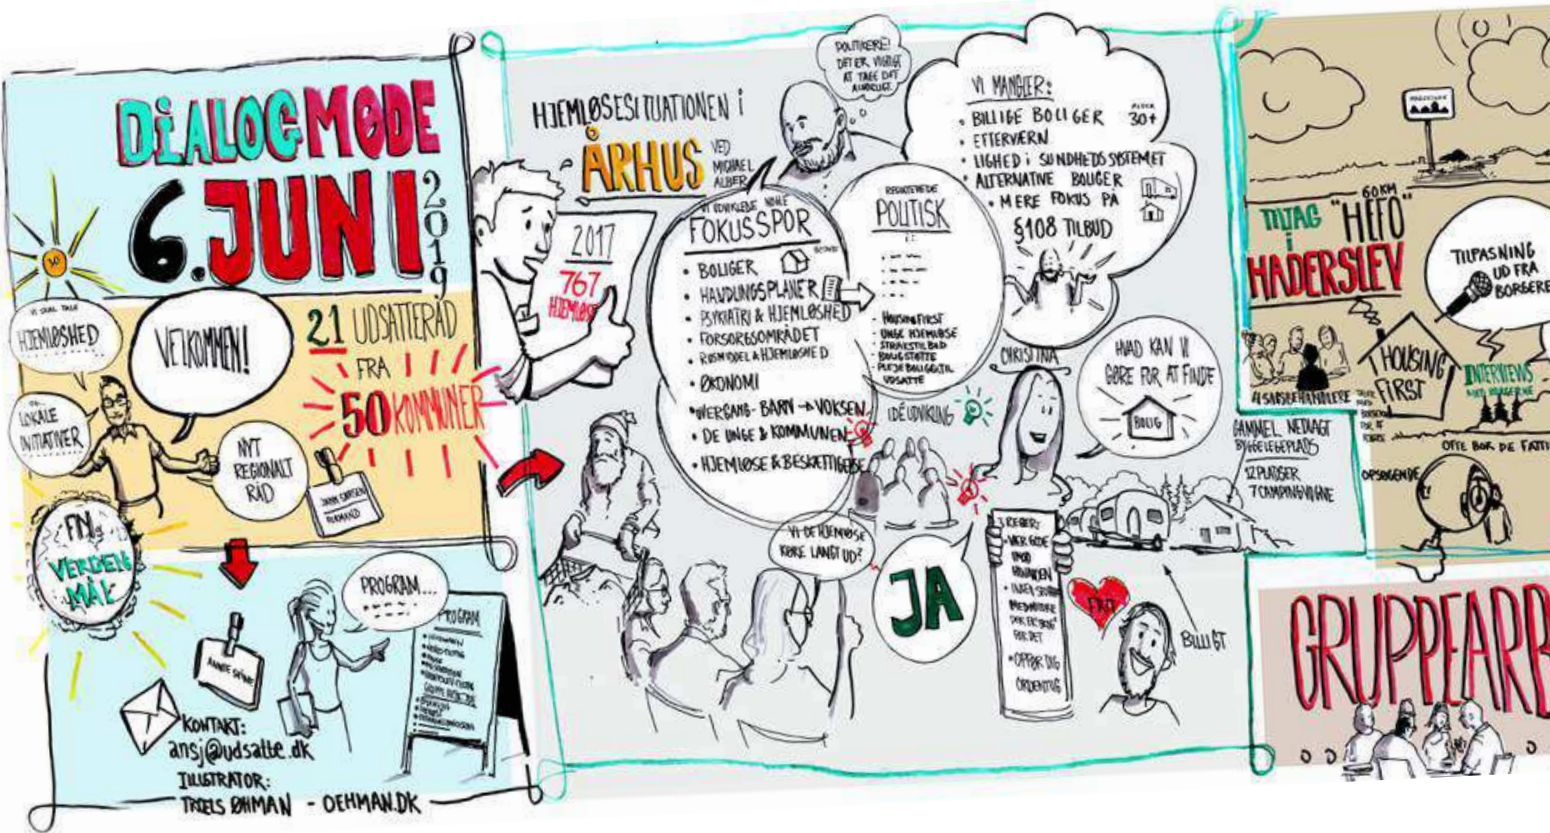 DIALOGMØDE
6. JUNI
2019
VI SKAL TALE
HJEMLØSHED
VELKOMMEN!
OG...
LOKALE
INITIATIVER
NYT
REGIONALT
RÅD
21 UDSATTERÅD
FRA
50 KOMMUNER
FORMAND
FN's
VERDENS
MÅL
PROGRAM...
PROGRAM
KONTAKT:
ansj@udsatte.dk
ILLUSTRATOR:
TROELS ØHMAN - OEHMAN.DK
HJEMLØSESITUATIONEN i
ÅRHUS
VED
MICHAEL
ALBER
2017
767
HJEMLØSE
POLITIKERE!
DET ER VIGTIGT
AT TAGE DET
ALVORLIGT
FOKUSSPOR
• BOLIGER
• HANDLUNGSPLANER
• PSYKIATRI & HJEMLØSHED
• FORSORGSOMRÅDET
• RUSMIDDEL & HJEMLØSHED
• ØKONOMI
• OVERGANG - BARN → VOKSEN
• DE UNGE & KOMMUNEN
• HJEMLØSE & BESKÆFTIGELSE
POLITISK
- HOUSING FIRST
- UNGE HJEMLØSE
- STRAKSTILBUD
- BOLIGSTØTTE
- PLEJEBOLIGER TIL
UDSATTE
VI MANGLER:
• BILLIGE BOLIGER
30+
• EFTERVÆRN
• LIGHED i SUNDHEDSSYSTEMET
• ALTERNATIVE BOLIGER
• MERE FOKUS PÅ
§108 TILBUD
IDÉUDVIKLING
CHRISTINA
HVAD KAN VI
GØRE FOR AT FINDE
BOLIG
VI DE HJEMLØSE
KØRE LANGT UD?
JA
• VÆR GODE
MOD
HINANDEN
• OPFØR DIG
ORDENTLIG
FRIT
BILLIGT
GAMMEL NEDLAGT
BYGGELEGEPLADS
12 PLADSER
7 CAMPINGVOGNE
60 KM
TILTAG "HEFO"
i
HADERSLEV
TILPASNING
UD FRA
BORGERE
HOUSING
FIRST
INTERVIEWS
MED BORGERNE
OFTE BOR DE FATTI
OPSØGENDE
GRUPPEARB